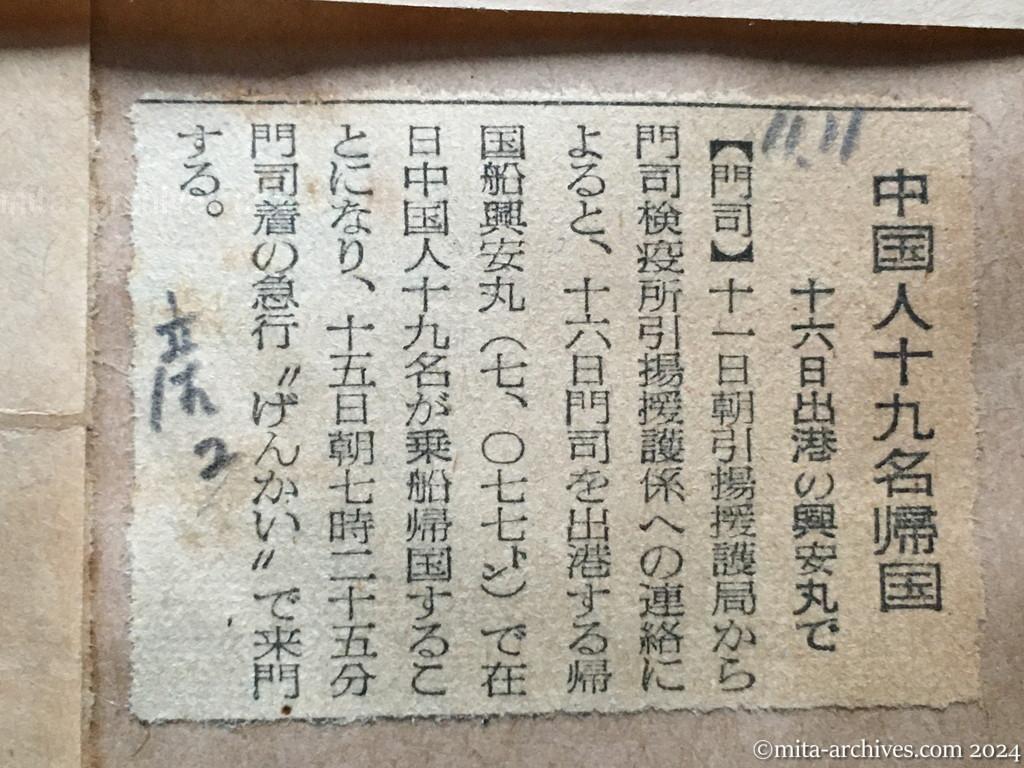 中国人十九名帰国
十六日出港の興安丸で
11.11
【門司】十一日朝引揚援護局から
門司検疫所引揚援護係への連絡に
よると、十六日門司を出港する帰
国船興安丸（七、〇七七㌧）で在
日中国人十九名が乗船帰国するこ
とになり、十五日朝七時二十五分
門司着の急行〝げんかい〟で来門
する。
2
©mita-archives.com 2024